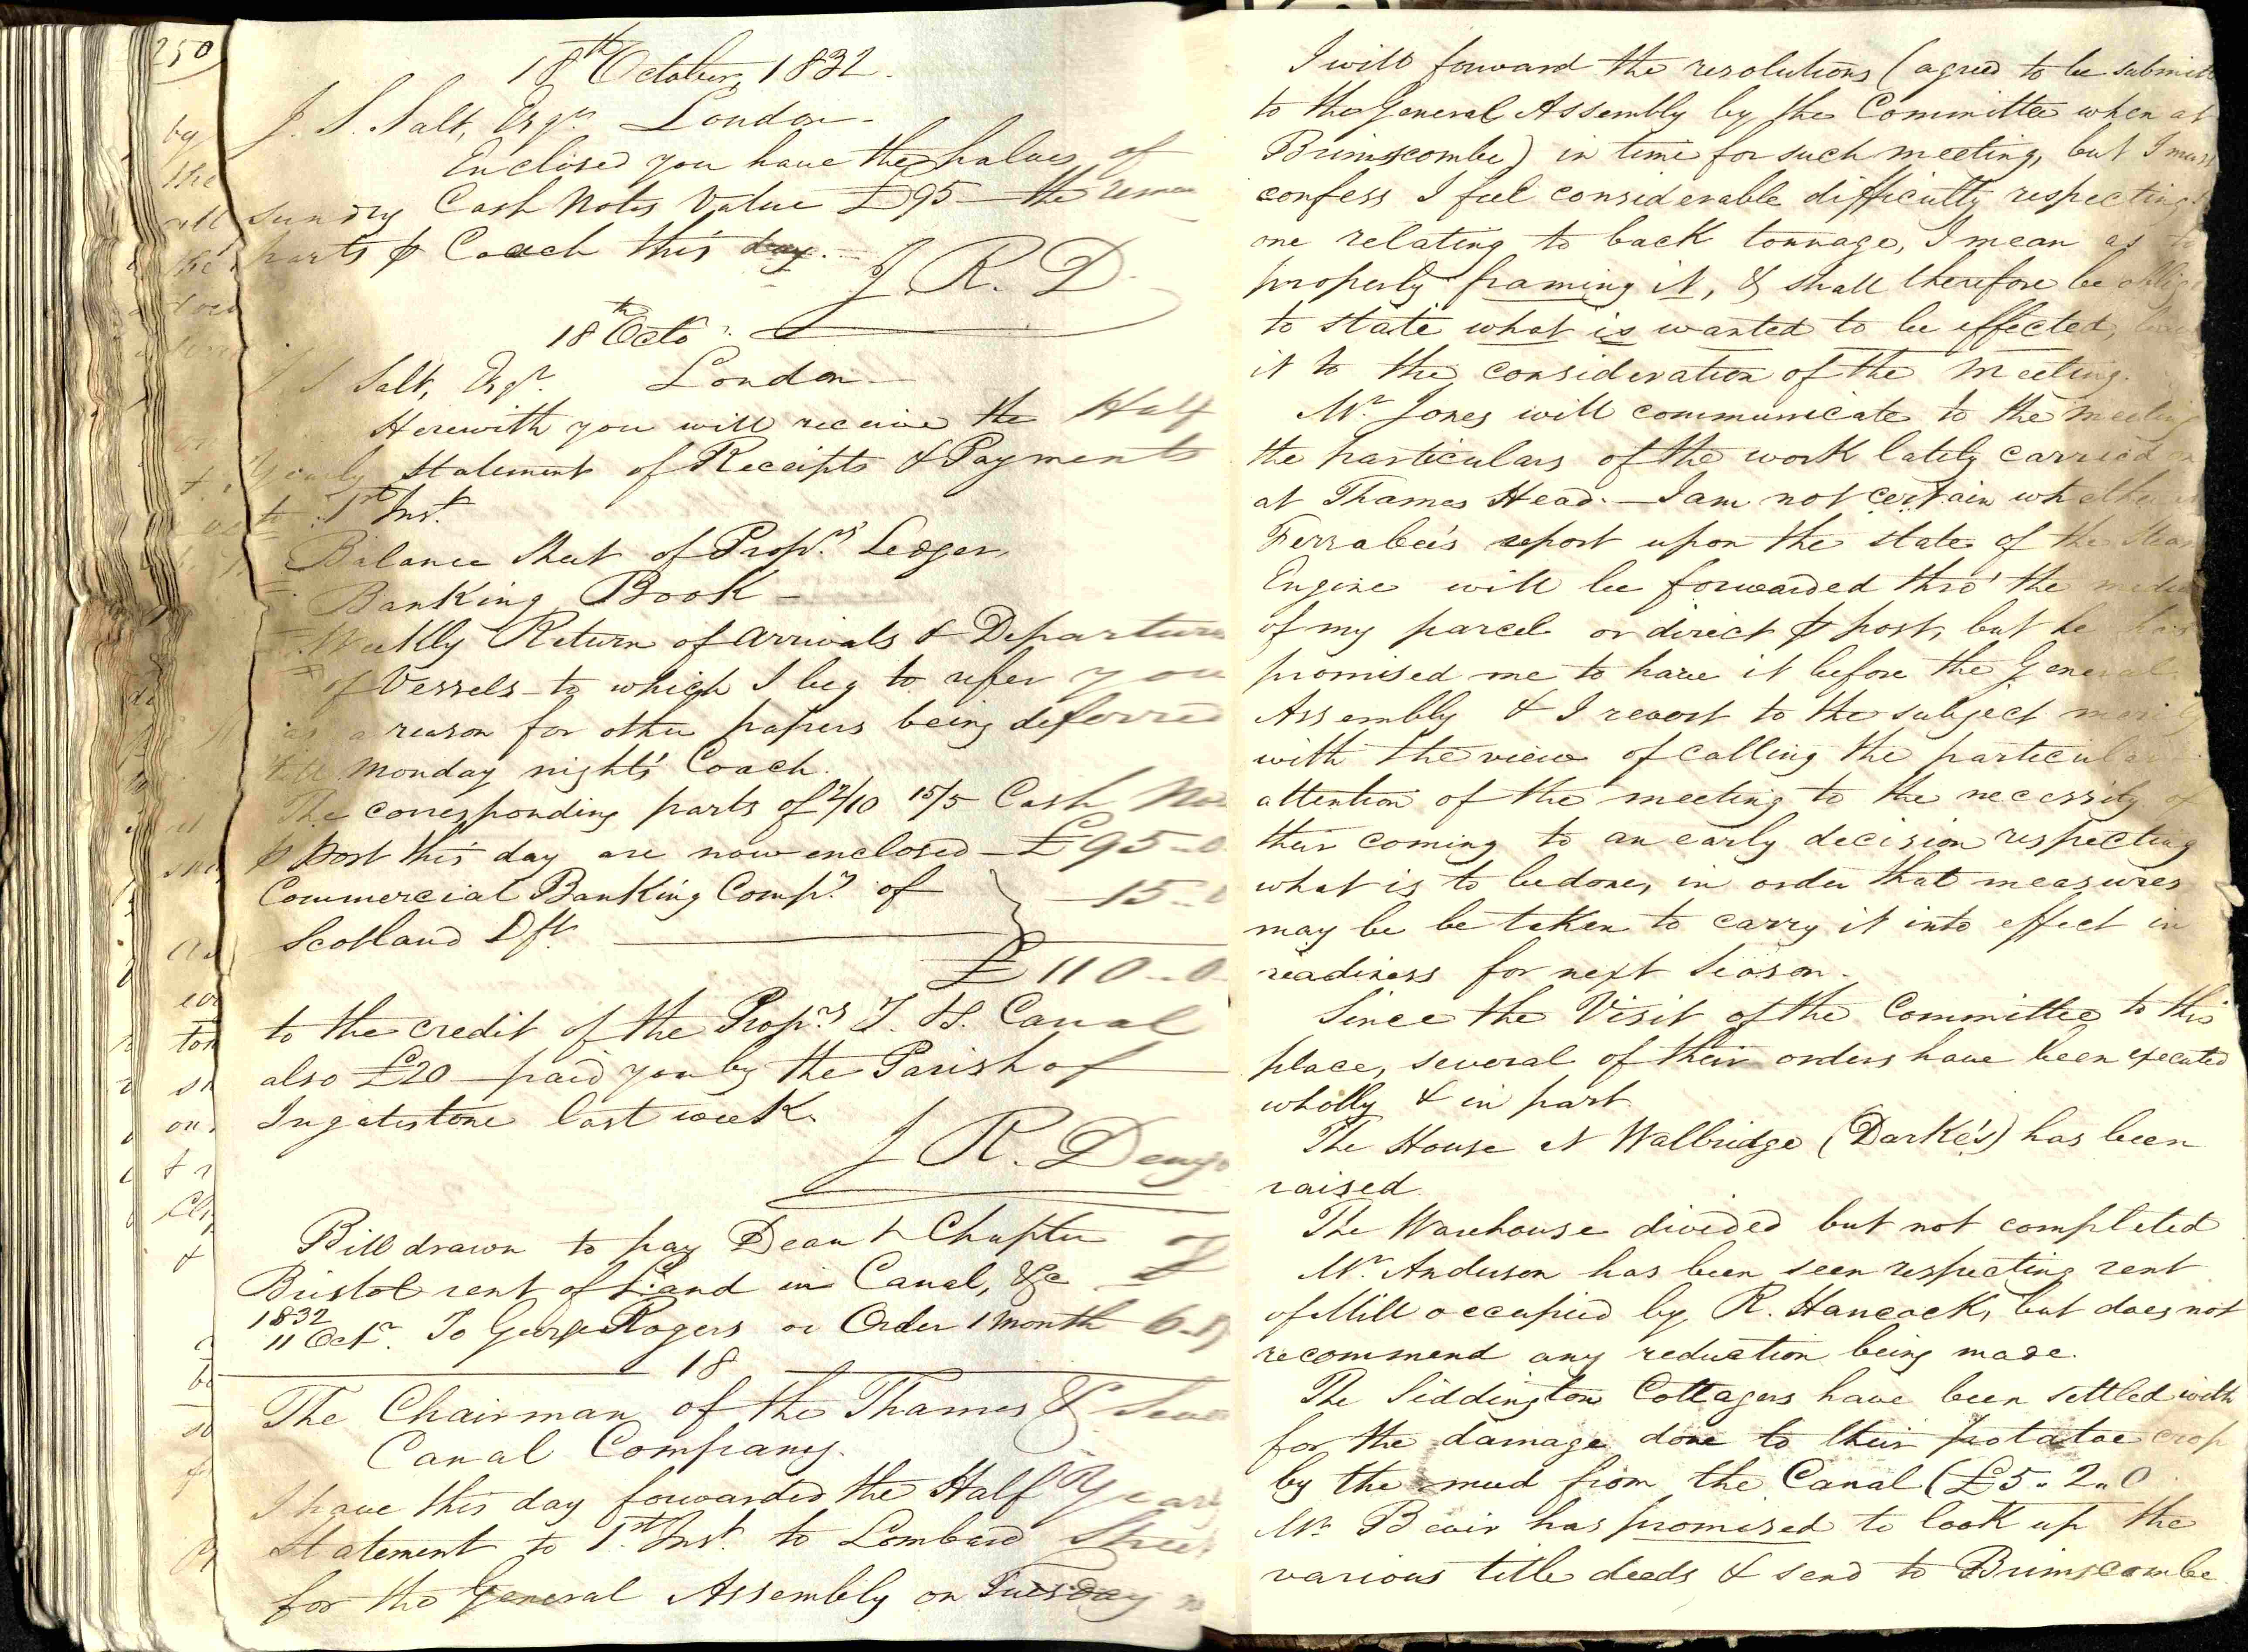 250
18th October, 1832.
J. S. Salt, Esqr. London -
Enclosed you have the halves of
sundry Cash Notes Value £95 - the
parts ⅌ Coach this day. -
J. R. D
18th Octo.
J S Salt, Esqr. London -
Herewith you will receive the Half
Yearly Statement of Receipts & Payments
to 1st Inst.
Balance Sheet of Proprs Ledger,
Banking Book -
Weekly Return of Arrivals & Departure
of Vessels - to which I beg to refer you
as a reason for other papers being deferred
till Monday night's Coach.
The corresponding parts of 2/10 15/5 Cash
⅌ post this day are now enclosed - £95 - 0
Commercial Banking Compy. of
Scotland Dft. - 15 - 0
£110 - 0
to the credit of the Proprs T. & S. Canal
also £20 - paid you by the Parish of
Ingatestone last week.
J R. Denyer
Bill drawn to pay Dean & Chapter
Bristol rent of Land in Canal, &c £
1832
11 Octr. To George Rogers or Order 1 Month 6 -
18
The Chairman of the Thames &
Canal Company.
I have this day forwarded the Half Year
Statement to 1st Inst. to Lombard Street
for the General Assembly on Tuesday
I will forward the resolutions (agreed to be submit
to the General Assembly by the Committee when at
Brimscombe) in time for such meeting, but I must
confess I feel considerable difficulty respecting
one relating to back tonnage, I mean as to
properly framing it, & shall therefore be oblig
to state what is wanted to be effected,
it to the consideration of the Meeting.
Mr. Jones will communicate to the meeting
the particulars of the work lately carried on
at Thames Head. - I am not certain whether
Ferrabee's report upon the state of the Steam
Engine will be forwarded thro' the
of my parcel or direct ⅌ post, but he has
promised me to have it before the General
Assembly & I revert to the subject
with the view of calling the particular
attention of the meeting to the necessity of
their coming to an early decision respecting
what is to be done, in order that measures
may be be taken to carry it into effect in
readiness for next Season.
Since the Visit of the Committee to this
place, several of their orders have been executed
wholly & in part.
The House at Walbridge (Darke's) has been
raised.
The Warehouse divided but not completed
Mr. Anderson has been seen respecting rent
of Mill occupied by R. Hancock, but does not
recommend any reduction being made.
The Siddington Cottagers have been settled with
for the damage done to their potatoe crop
by the mud from the Canal (£5 .. 2 .. 0
Mr. Bevir has promised to look up the
various title deeds & send to Brimscombe